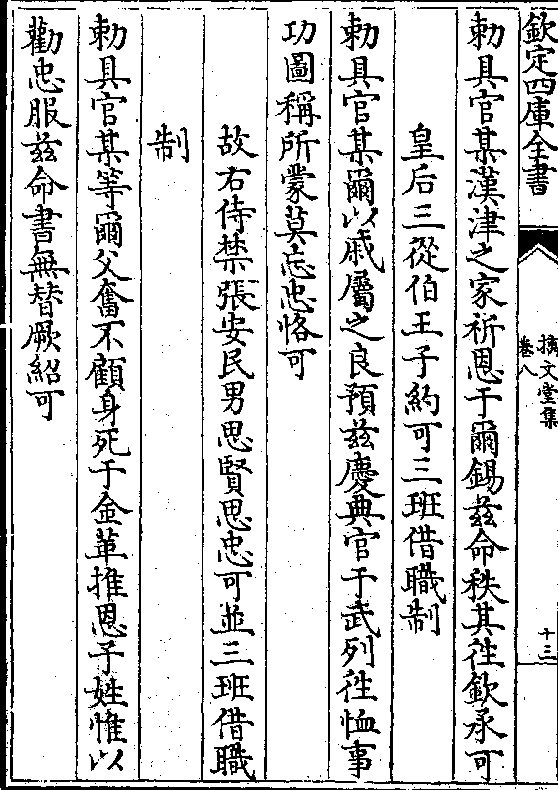 欽定四庫全書
摛文堂集
卷八
十三
勅具官某漢津之家祈恩于爾錫兹命秩其徃欽承可
皇后三從伯王子約可三班借職制
勅具官某爾以戚屬之良預兹慶典官于武列徃恤事
功圖稱所蒙莫忘忠恪可
故右侍禁張安民男思賢思忠可並三班借職
制
勅具官某等爾父奮不顧身死于金革推恩子姓惟以
勸忠服兹命書無替厥紹可